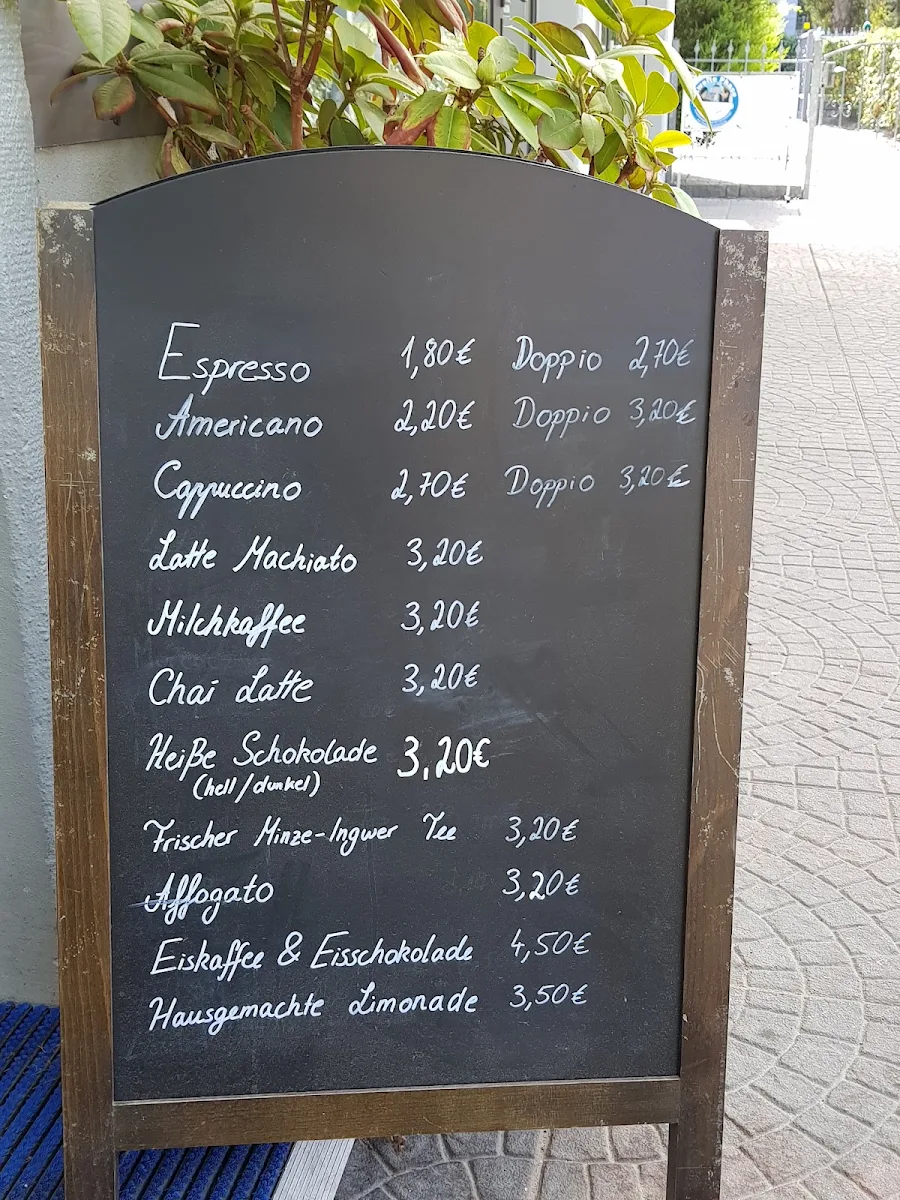 Espresso 1,80€ Doppio 2,70€
Americano 2,20€ Doppio 3,20€
Cappuccino 2,70€ Doppio 3,20€
Latte Machiato 3,20€
Milchkaffee 3,20€
Chai Latte 3,20€
Heiße Schokolade 3,20€
(hell/dunkel)
Frischer Minze-Ingwer Tee 3,20€
Affogato 3,20€
Eiskaffee & Eisschokolade 4,50€
Hausgemachte Limonade 3,50€